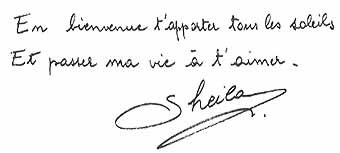 En bienvenue t'apporter tous les soleils
Et passer ma vie à t'aimer.
Sheila.